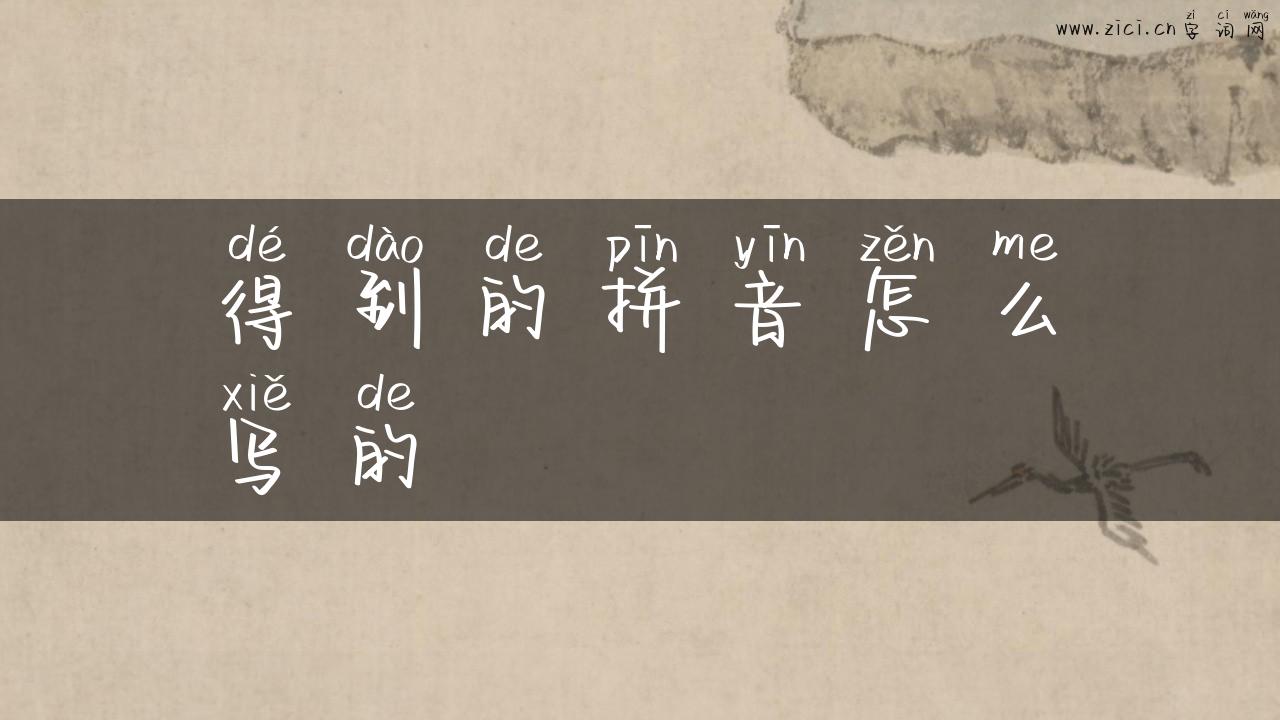 zì cí wǎng
www.zici.cn 字 词 网
dé dào de pīn yīn zěn me
得 到 的 拼 音 怎 么
xiě de
写 的